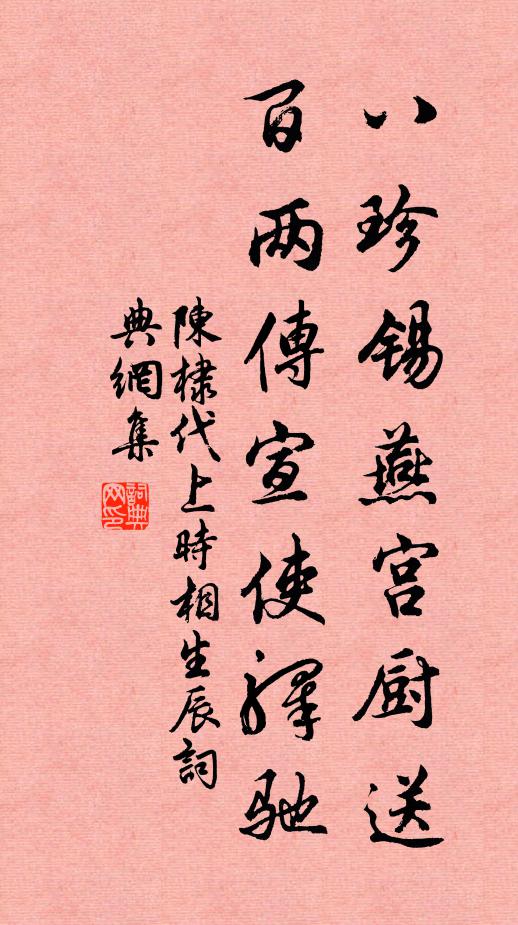 八珍锡燕宫厨送
百两傳宣使驛馳
陳棣代上時相生辰詞
典網集
詞典
网印